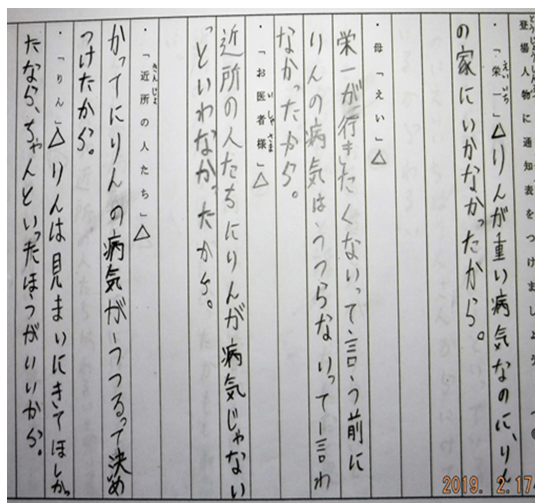 登場人物に通知表をつけましょう
・「栄一」△りんが重い病気なのに、りん
の家にいかなかったから。
・母「えい」△
栄一が行きたくないって言う前に
りんの病気は、うつらないって言わ
なかったから。
・「お医者様」△
近所の人たちにりんが病気じゃない
っといわなかったから。
・「近所の人たち」△
かってにりんの病気がうつるって決め
つけたから。
・「りん」△りんは見まいにきてほしか
たなら、ちゃんといったほうがいいから。
2019. 2.17